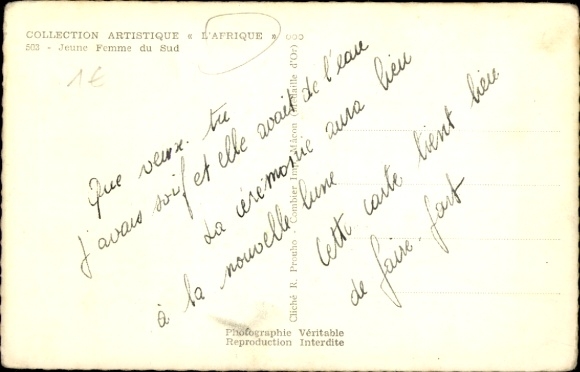 COLLECTION ARTISTIQUE « L'AFRIQUE »
503 - Jeune Femme du Sud
1€
Que veux tu
j'avais soif et elle avait de l'eau
La cérémonie aura lieu
à la nouvelle lune
Cette carte tient bien
de faire-part
Cliché R. Prouho - Combier Imp. Mâcon (Médaille d'Or)
Photographie Véritable
Reproduction Interdite